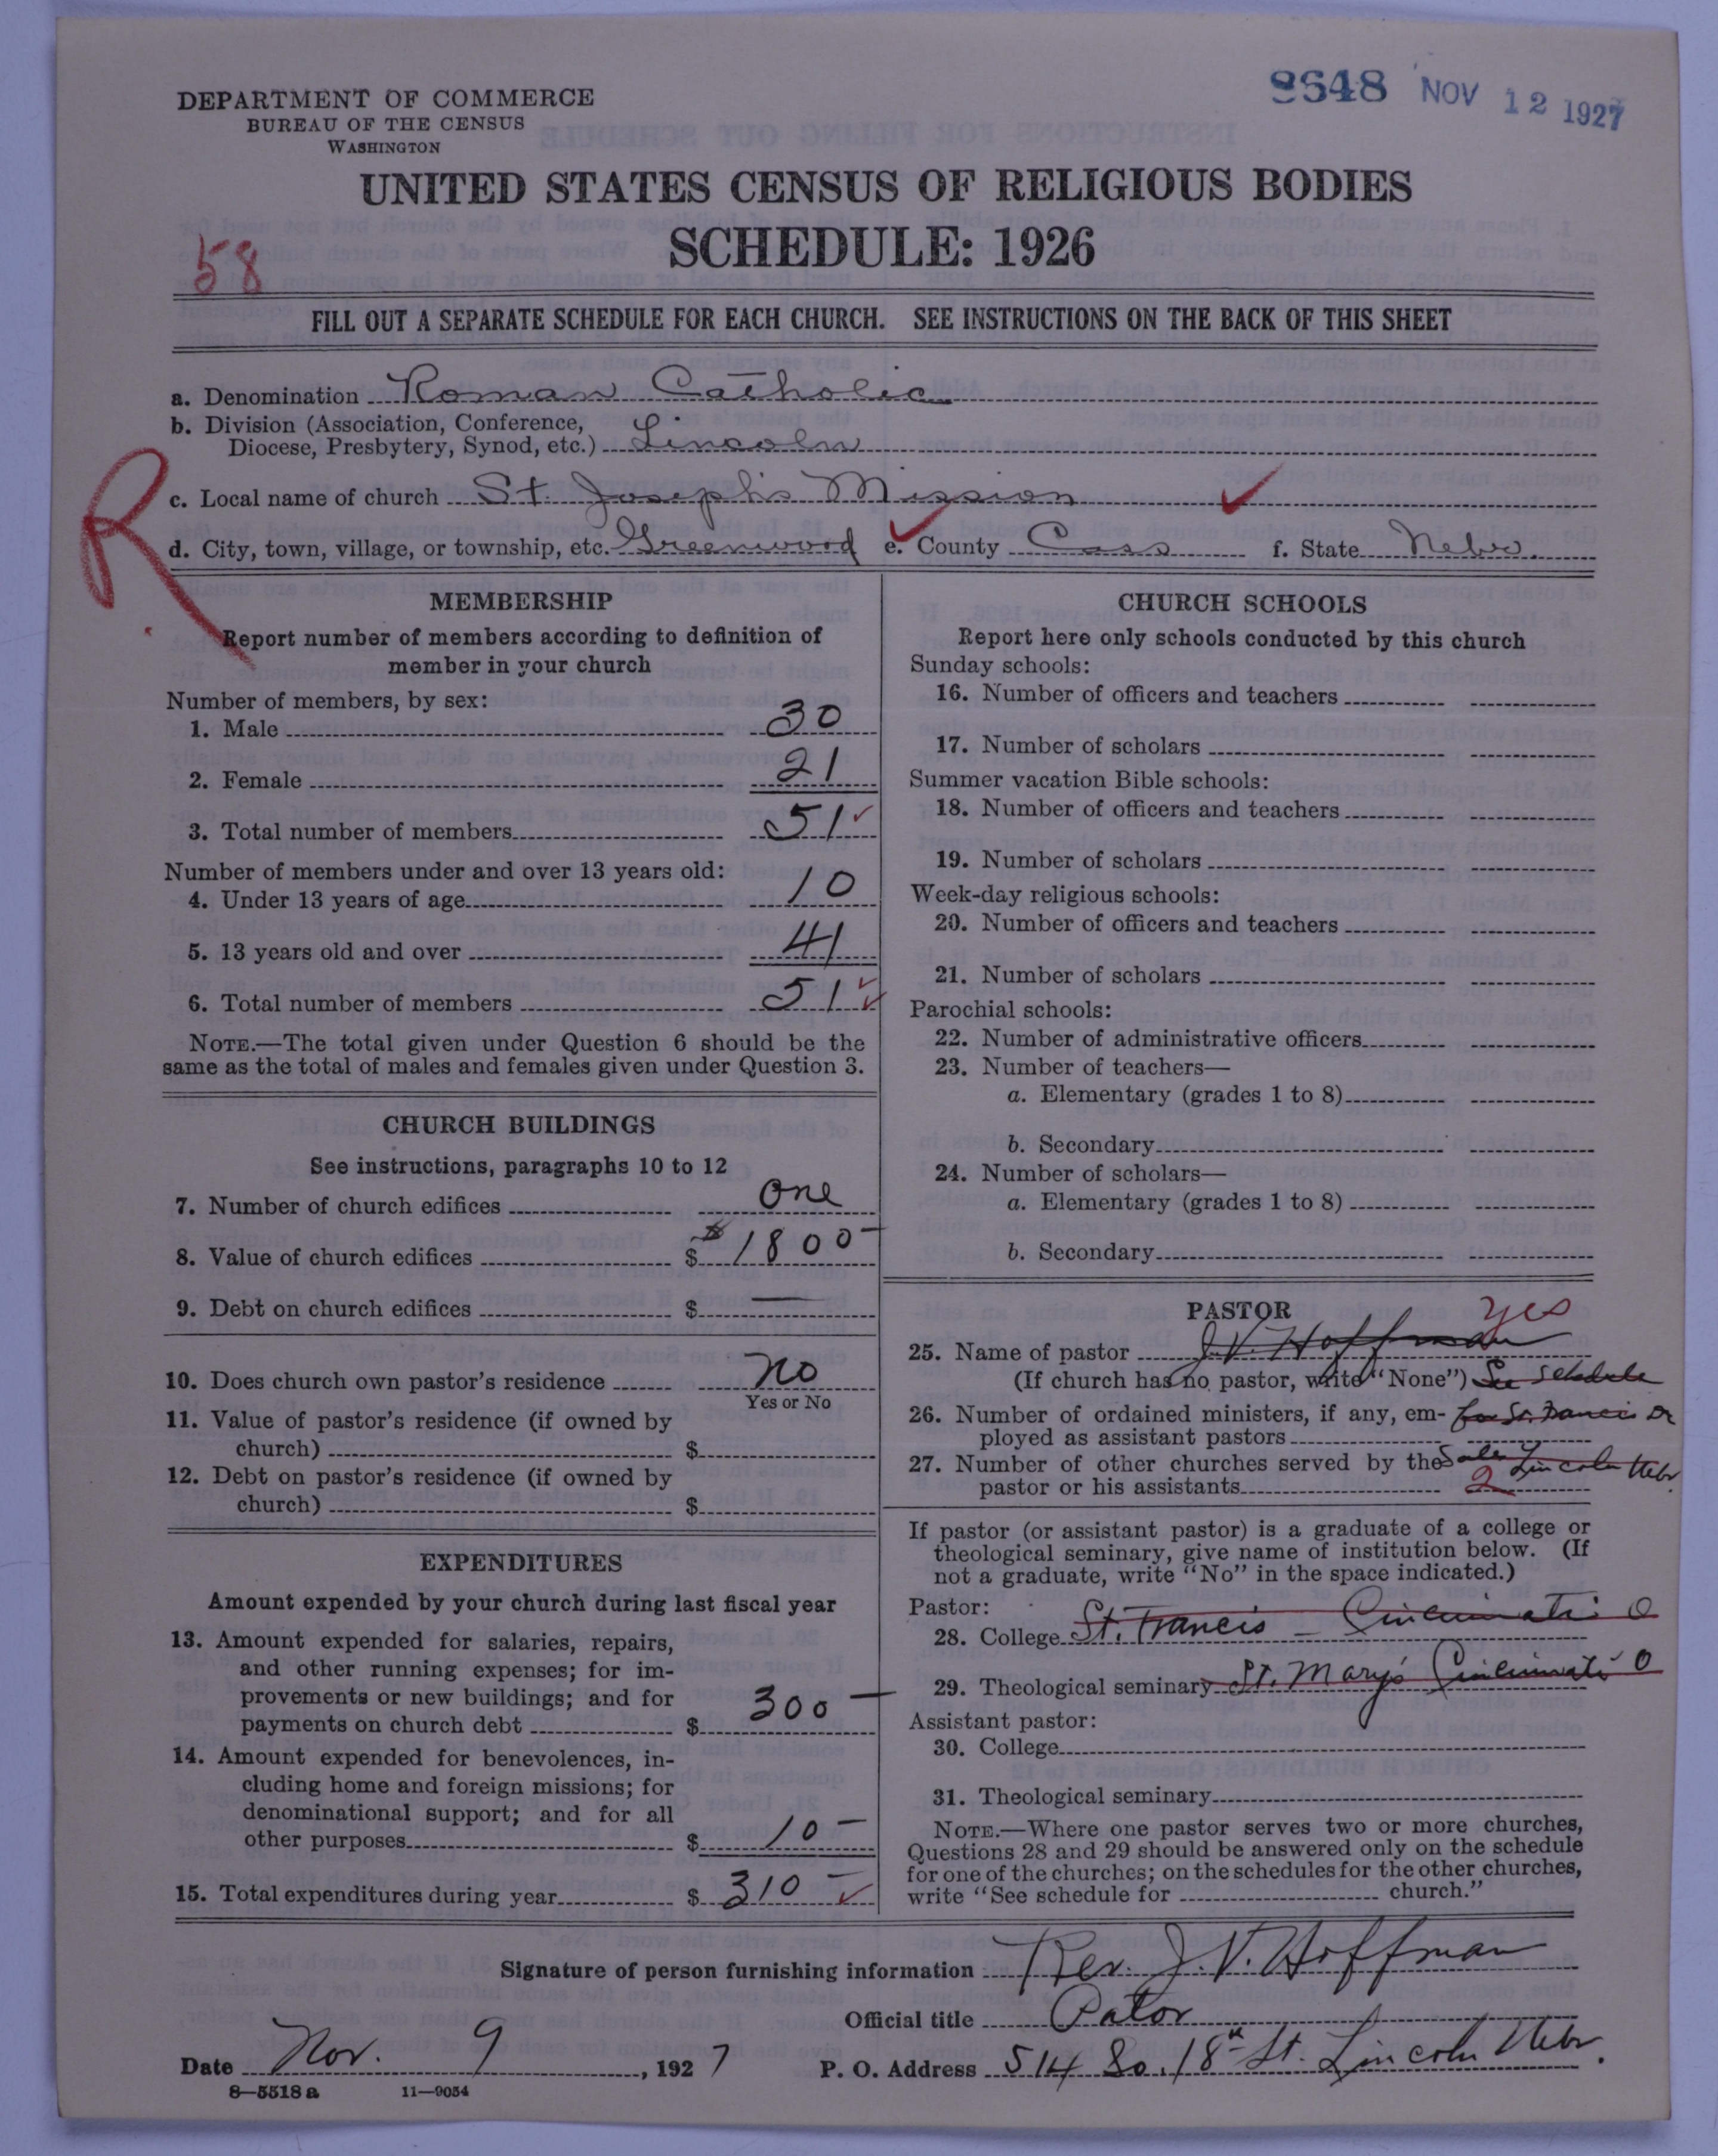 8648 NOV 12 1927
DEPARTMENT OF COMMERCE
BUREAU OF THE CENSUS
WASHINGTON
UNITED STATES CENSUS OF RELIGIOUS BODIES
SCHEDULE: 1926
58
FILL OUT A SEPARATE SCHEDULE FOR EACH CHURCH. SEE INSTRUCTIONS ON THE BACK OF THIS SHEET
a. Denomination Roman Catholic
b. Division (Association, Conference,
Diocese, Presbytery, Synod, etc.) Lincoln
R
c. Local name of church St. Joseph's Mission
d. City, town, village, or township, etc. Greenwood e. County Cass f. State Nebr.
MEMBERSHIP
Report number of members according to definition of
member in your church
Number of members, by sex:
1. Male 30
2. Female 21
3. Total number of members 51
Number of members under and over 13 years old:
4. Under 13 years of age 10
5. 13 years old and over 41
6. Total number of members 51
NOTE.—The total given under Question 6 should be the
same as the total of males and females given under Question 3.
CHURCH BUILDINGS
See instructions, paragraphs 10 to 12
7. Number of church edifices One
8. Value of church edifices $ $1800-
9. Debt on church edifices $ —
10. Does church own pastor's residence No
Yes or No
11. Value of pastor's residence (if owned by
church) $
12. Debt on pastor's residence (if owned by
church) $
EXPENDITURES
Amount expended by your church during last fiscal year
13. Amount expended for salaries, repairs,
and other running expenses; for im-
provements or new buildings; and for
payments on church debt $ 300—
14. Amount expended for benevolences, in-
cluding home and foreign missions; for
denominational support; and for all
other purposes $ 10-
15. Total expenditures during year $ 310-
CHURCH SCHOOLS
Report here only schools conducted by this church
Sunday schools:
16. Number of officers and teachers
17. Number of scholars
Summer vacation Bible schools:
18. Number of officers and teachers
19. Number of scholars
Week-day religious schools:
20. Number of officers and teachers
21. Number of scholars
Parochial schools:
22. Number of administrative officers
23. Number of teachers—
a. Elementary (grades 1 to 8)
b. Secondary
24. Number of scholars—
a. Elementary (grades 1 to 8)
b. Secondary
PASTOR yes
25. Name of pastor J. V. Hoffman
(If church has no pastor, write "None") See schedule
26. Number of ordained ministers, if any, em- for St. Francis De
ployed as assistant pastors
27. Number of other churches served by the Sales Lincoln Nebr.
pastor or his assistants 2
If pastor (or assistant pastor) is a graduate of a college or
theological seminary, give name of institution below. (If
not a graduate, write "No" in the space indicated.)
Pastor:
28. College St. Francis - Cincinnati O
29. Theological seminary St. Mary's Cincinnati O
Assistant pastor:
30. College
31. Theological seminary
NOTE.—Where one pastor serves two or more churches,
Questions 28 and 29 should be answered only on the schedule
for one of the churches; on the schedules for the other churches,
write "See schedule for church."
Signature of person furnishing information Rev. J. V. Hoffman
Official title Pator
Date Nov. 9, 1927 P. O. Address 514 So. 18th St. Lincoln Nebr.
8—5518 a 11—9054